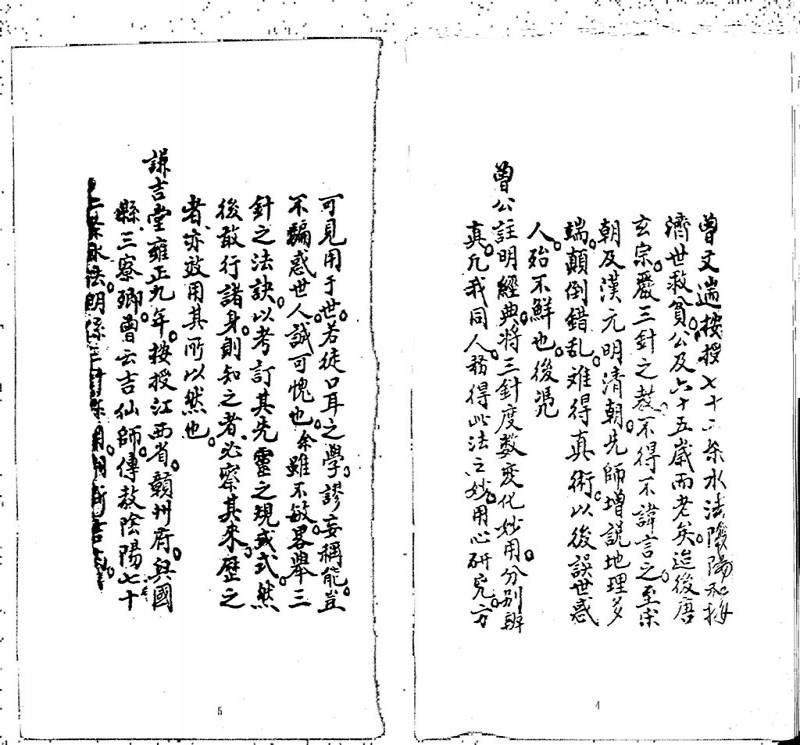 曾文遄按授七十二条水法陰陽和按
濟世救貧公及六十五歲而老矣迨後唐
玄宗嚴三針之教不得不諱言之至宋
朝及漢元明清朝先師增說地理多
端顛倒錯乱难得真術以後誤世惑
人殆不鮮也後凴
曾公註明經典將三針度数变化妙用分別辨
真凢我同人務得此法之妙用心研究方
4
可見用于世若徒口耳之學謬妄稱能豈
不騙惑世人誠可愧也余雖不敏畧舉三
針之法訣以考訂其先靈之現或式然
後敢行諸身則知之者必察其来歷之
者亦效用其所以然也
謙吉堂雍正九年按授江西省贛州府興國
縣三寮鄉曾云吉仙師傳教陰陽七十
5